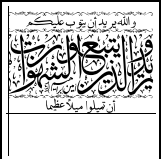 والله يريد أن يتوب عليكم
ويريد الذين يتبعون الشهوات
أن تميلوا ميلا عظيما